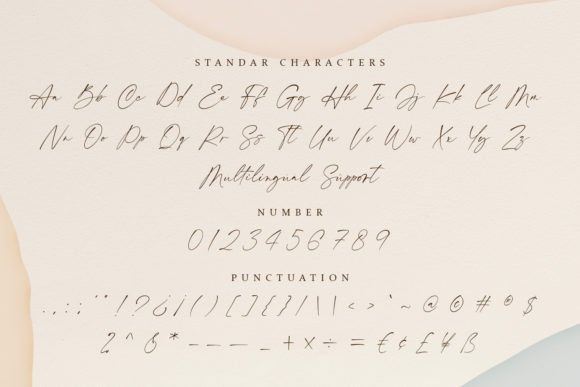 STANDAR CHARACTERS
Aa Bb Cc Dd Ee Ff Gg Hh Ii Jj Kk Ll Mm
Nn Oo Pp Qq Rr Ss Tt Uu Vv Ww Xx Yy Zz
Multilingual Support
NUMBER
0123456789
PUNCTUATION
. , : ; " ! ? ¿ ¡ ( ) [ ] { } / | \ < > ` ~ @ © # $
^ * - – — _ + × ÷ = € ¢ £ ¥ ß